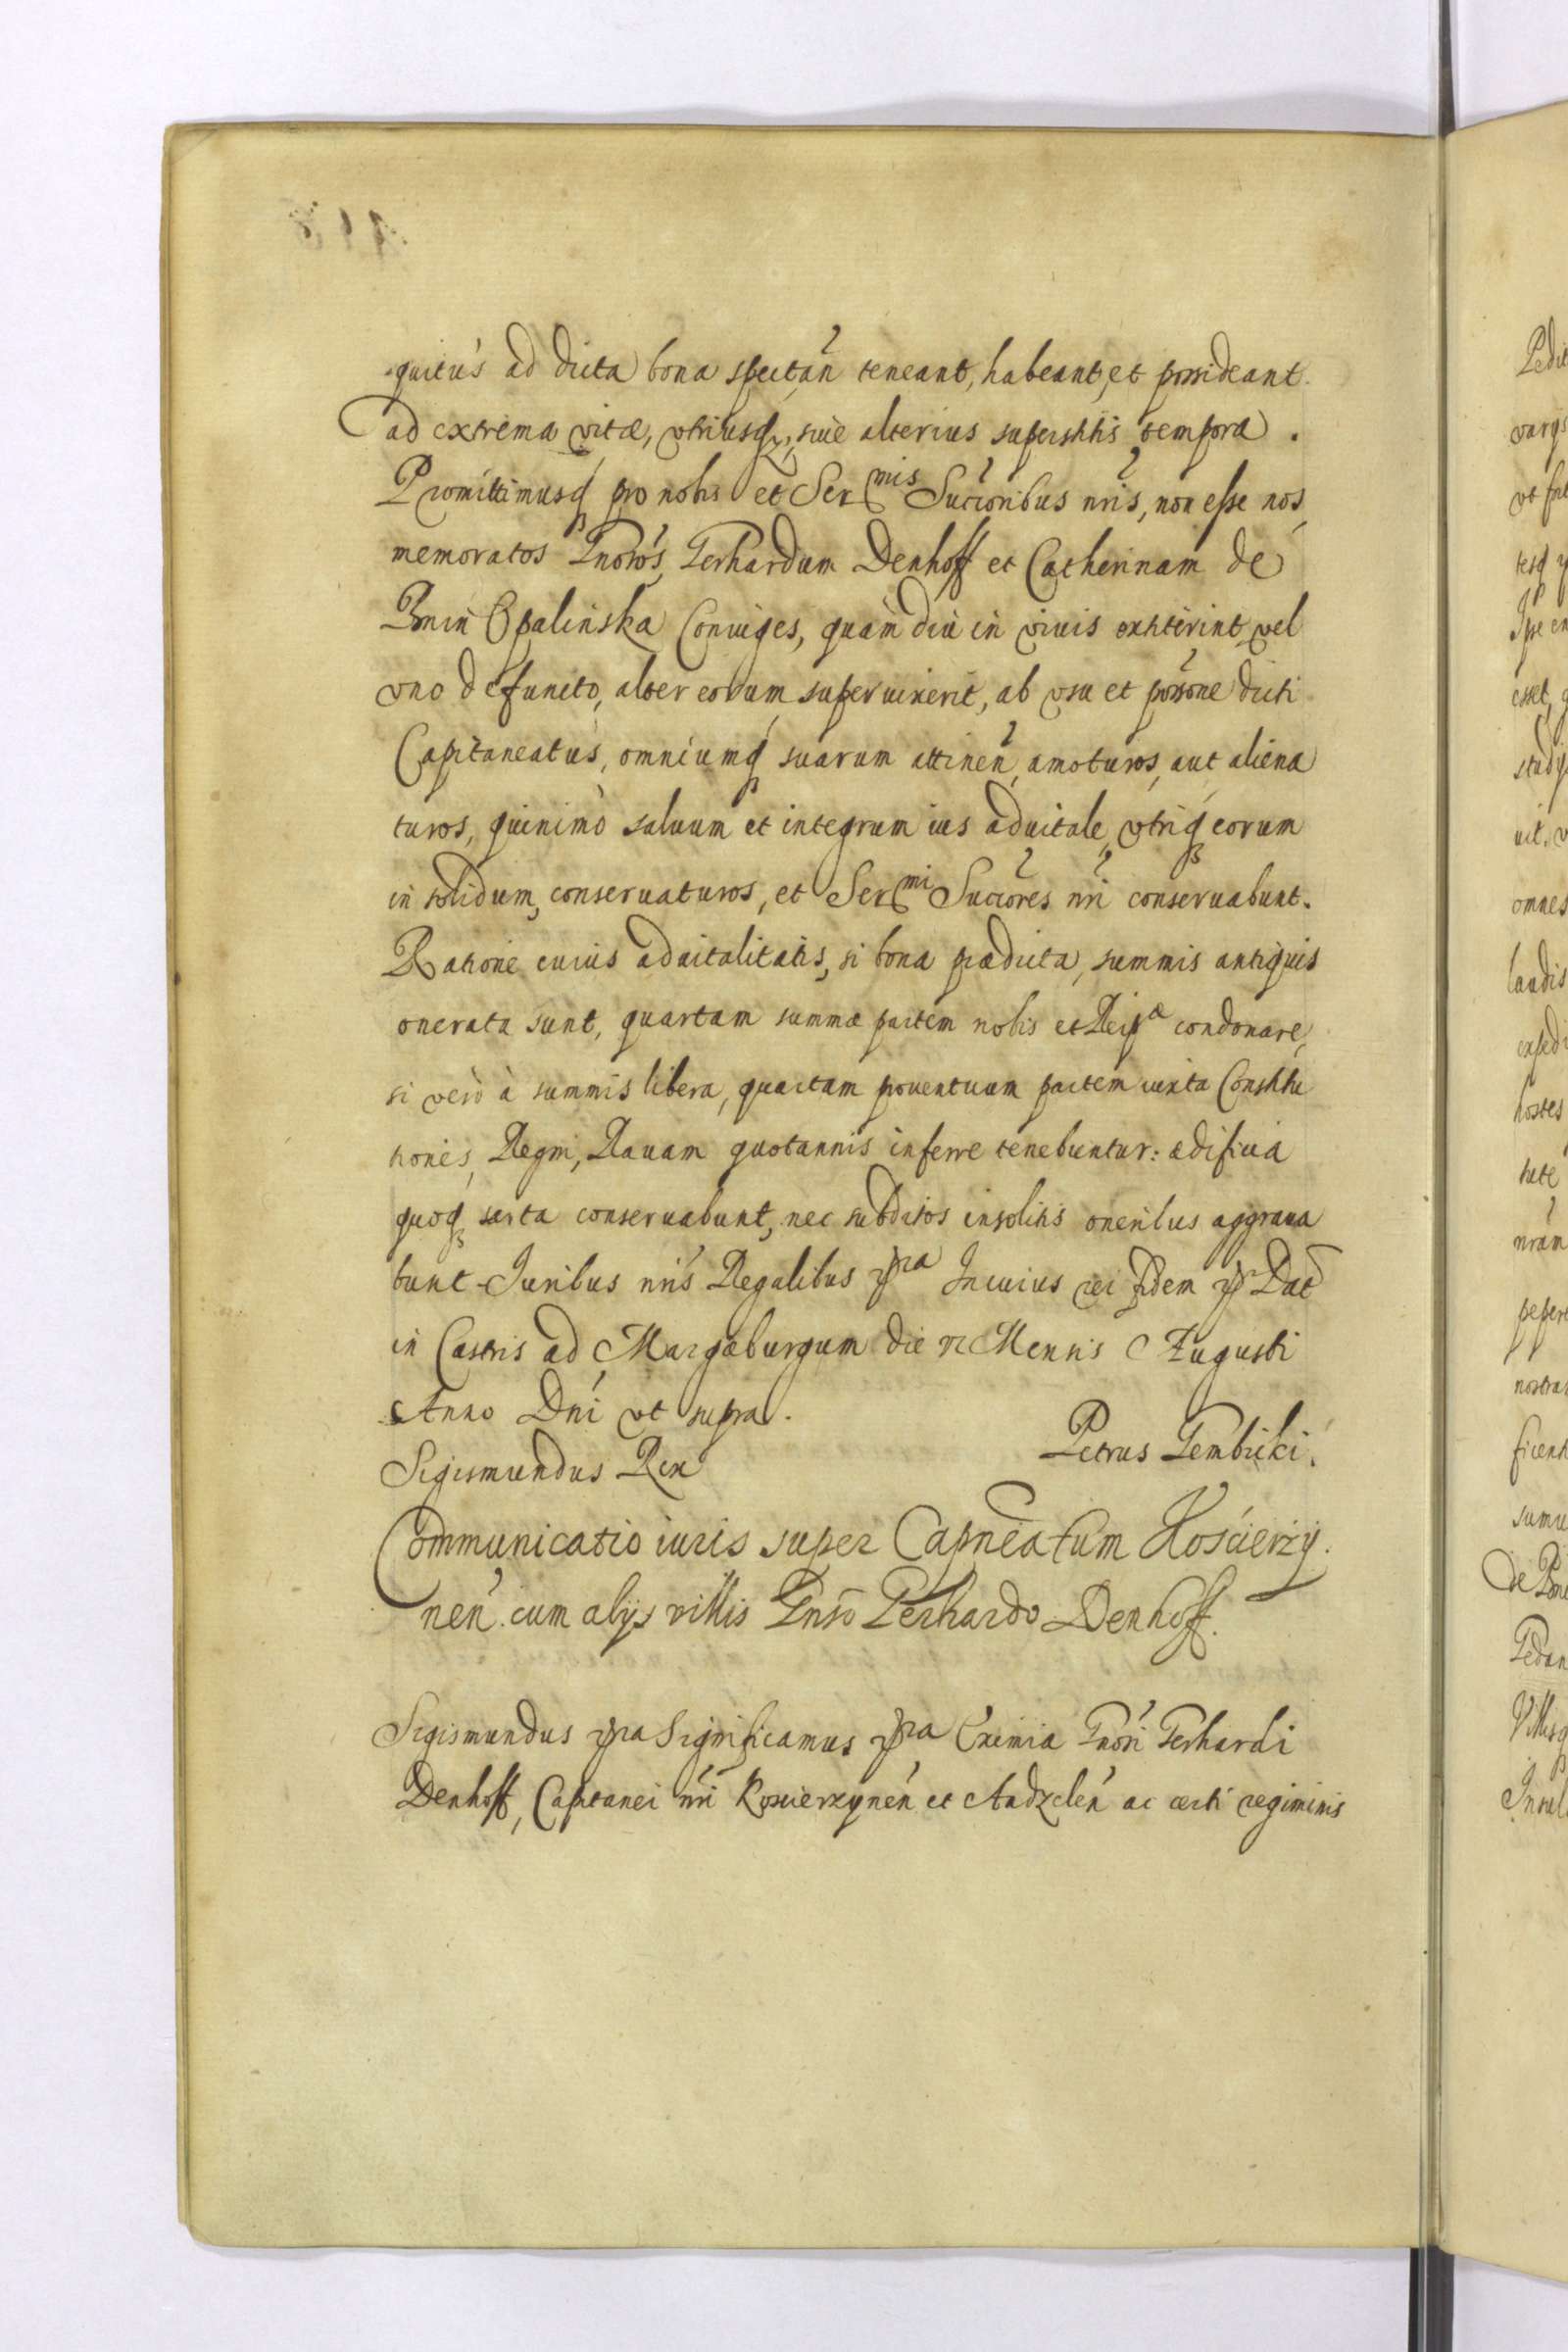 quitus ad dicta bona spectan̄ teneant, habeant, et possideant
ad extrema vitæ, vtriusq, siue alterius superstitis tempora.
Promittimusq pro nobis et Ser^mis Suc̄cōribus nr̄is, non esse nos
memoratos Gnōsos Gerhardum Denhoff et Catherinam de
Bnin Opalinska Coniuges, quàm diu in viuis extiterint, vel
vno defuncto, alter eorum superuixerit, ab vsu et poss̄one dicti
Capitaneatus, omniumq suarum attinen̄, amoturos, aut aliena
turos, quinimò saluum et integrum ius aduitale, vtriq eorum
in solidum, conseruaturos, et Ser^mi Succōres nr̄i conseruabunt.
Ratione cuius aduitalitatis, si bona prædicta, summis antiquis
onerata sunt, quartam summæ partem nobis et Reip^æ condonare,
si verò à summis libera, quartam prouentuum partem iuxta Constitu
tiones, Regni, Rauam quotannis inferre tenebuntur: ædificia
quoq sarta conseruabunt, nec subditos insolitis oneribus aggraua
bunt Juribus nr̄is Regalibus p^ra In cuius rei fidem p Dat̄
in Castris ad Margæburgum die VI Mensis Augusti
Anno Dn̄i vt supra.
Petrus Gembicki.
Sigismundus Rex
Communicatio iuris super Capn̄eatum Kościerzy
nen̄. cum alijs villis Gn̄so Gerhardo Denhoff.
Sigismundus p^ra Significamus p^ra Eximia Gn̄osi Gerhardi
Denhoff, Capitanei nr̄i Koscierzynen̄ et Andzelen̄ ac certi regiminis